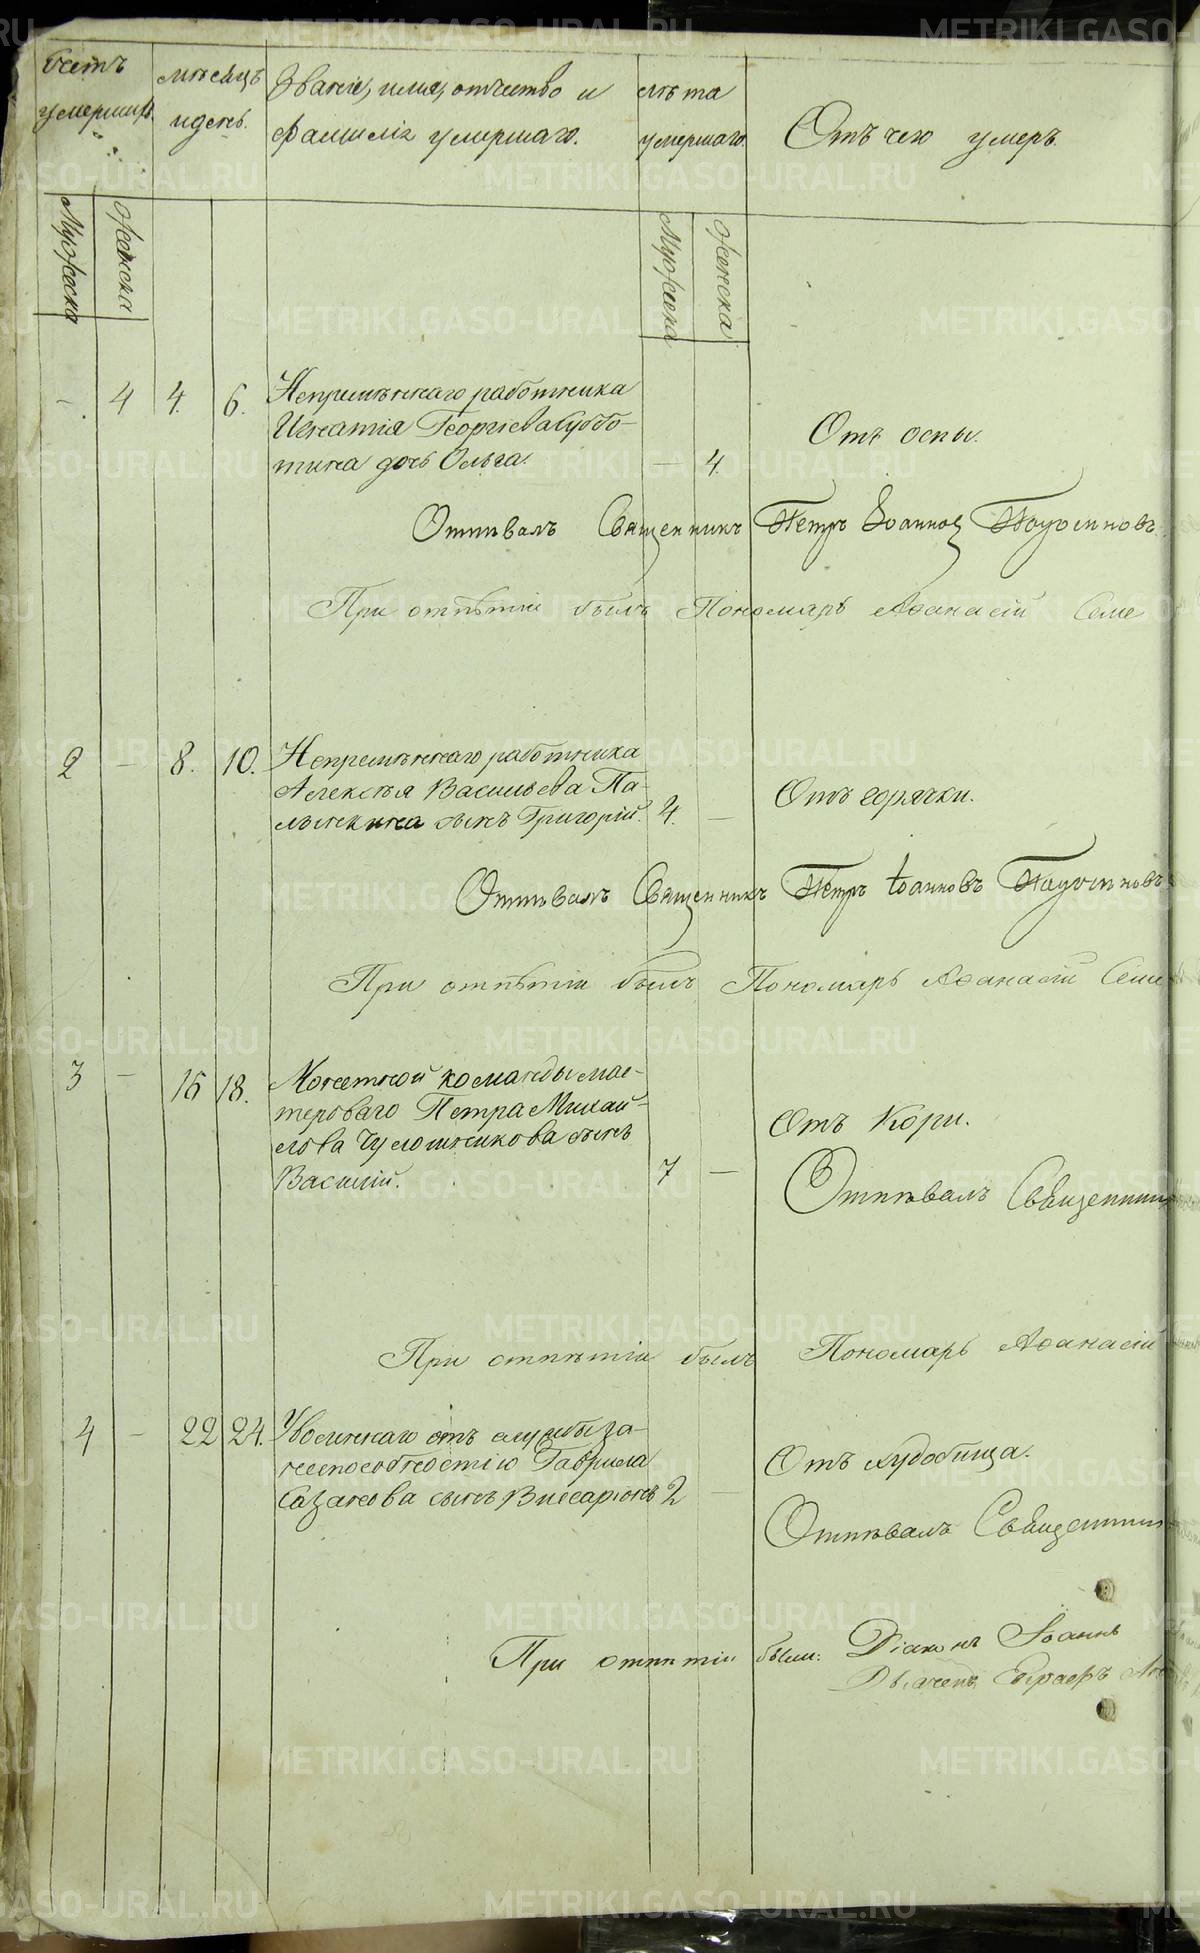 Счетъ
умершихъ.
мѣсяцъ
и день.
Званіе, имя, отчество и
фамилія умершаго.
лѣта
умершаго.
Отъ чего умеръ.
Мужеска
Женска
Мужеска
Женска
- 4 4. 6. Непремѣннаго работника
Игнатія Георгіева Суббо-
тина дочь Ольга. — 4.
Отъ оспы.
Отпѣвалъ Священникъ Петръ Іоанновъ
При отпѣтіи былъ Пономарь Аѳанасій Семе
2 - 8. 10. Непремѣннаго работника
Алексѣя Васильева Па-
лькина сынъ Григорій. 4. —
Отъ горячки.
Отпѣвалъ Священникъ Петръ Іоанновъ
При отпѣтіи былъ Пономарь Аѳанасій Семе
3 - 16 18. Монетной команды мас-
тероваго Петра Михай-
лова Чулошникова сынъ
Василій. 7 —
Отъ Кори.
Отпѣвалъ Священникъ
При отпѣтіи былъ Пономарь Аѳанасій
4 - 22 24. Уволеннаго отъ службы за
неспособностію Гаврила
Сазанова сынъ Виссаріонъ 2 —
Отъ худобища.
Отпѣвалъ Священник
При отпѣтіи были: Діаконъ Іоаннъ
METRIKI.GASO-URAL.RU